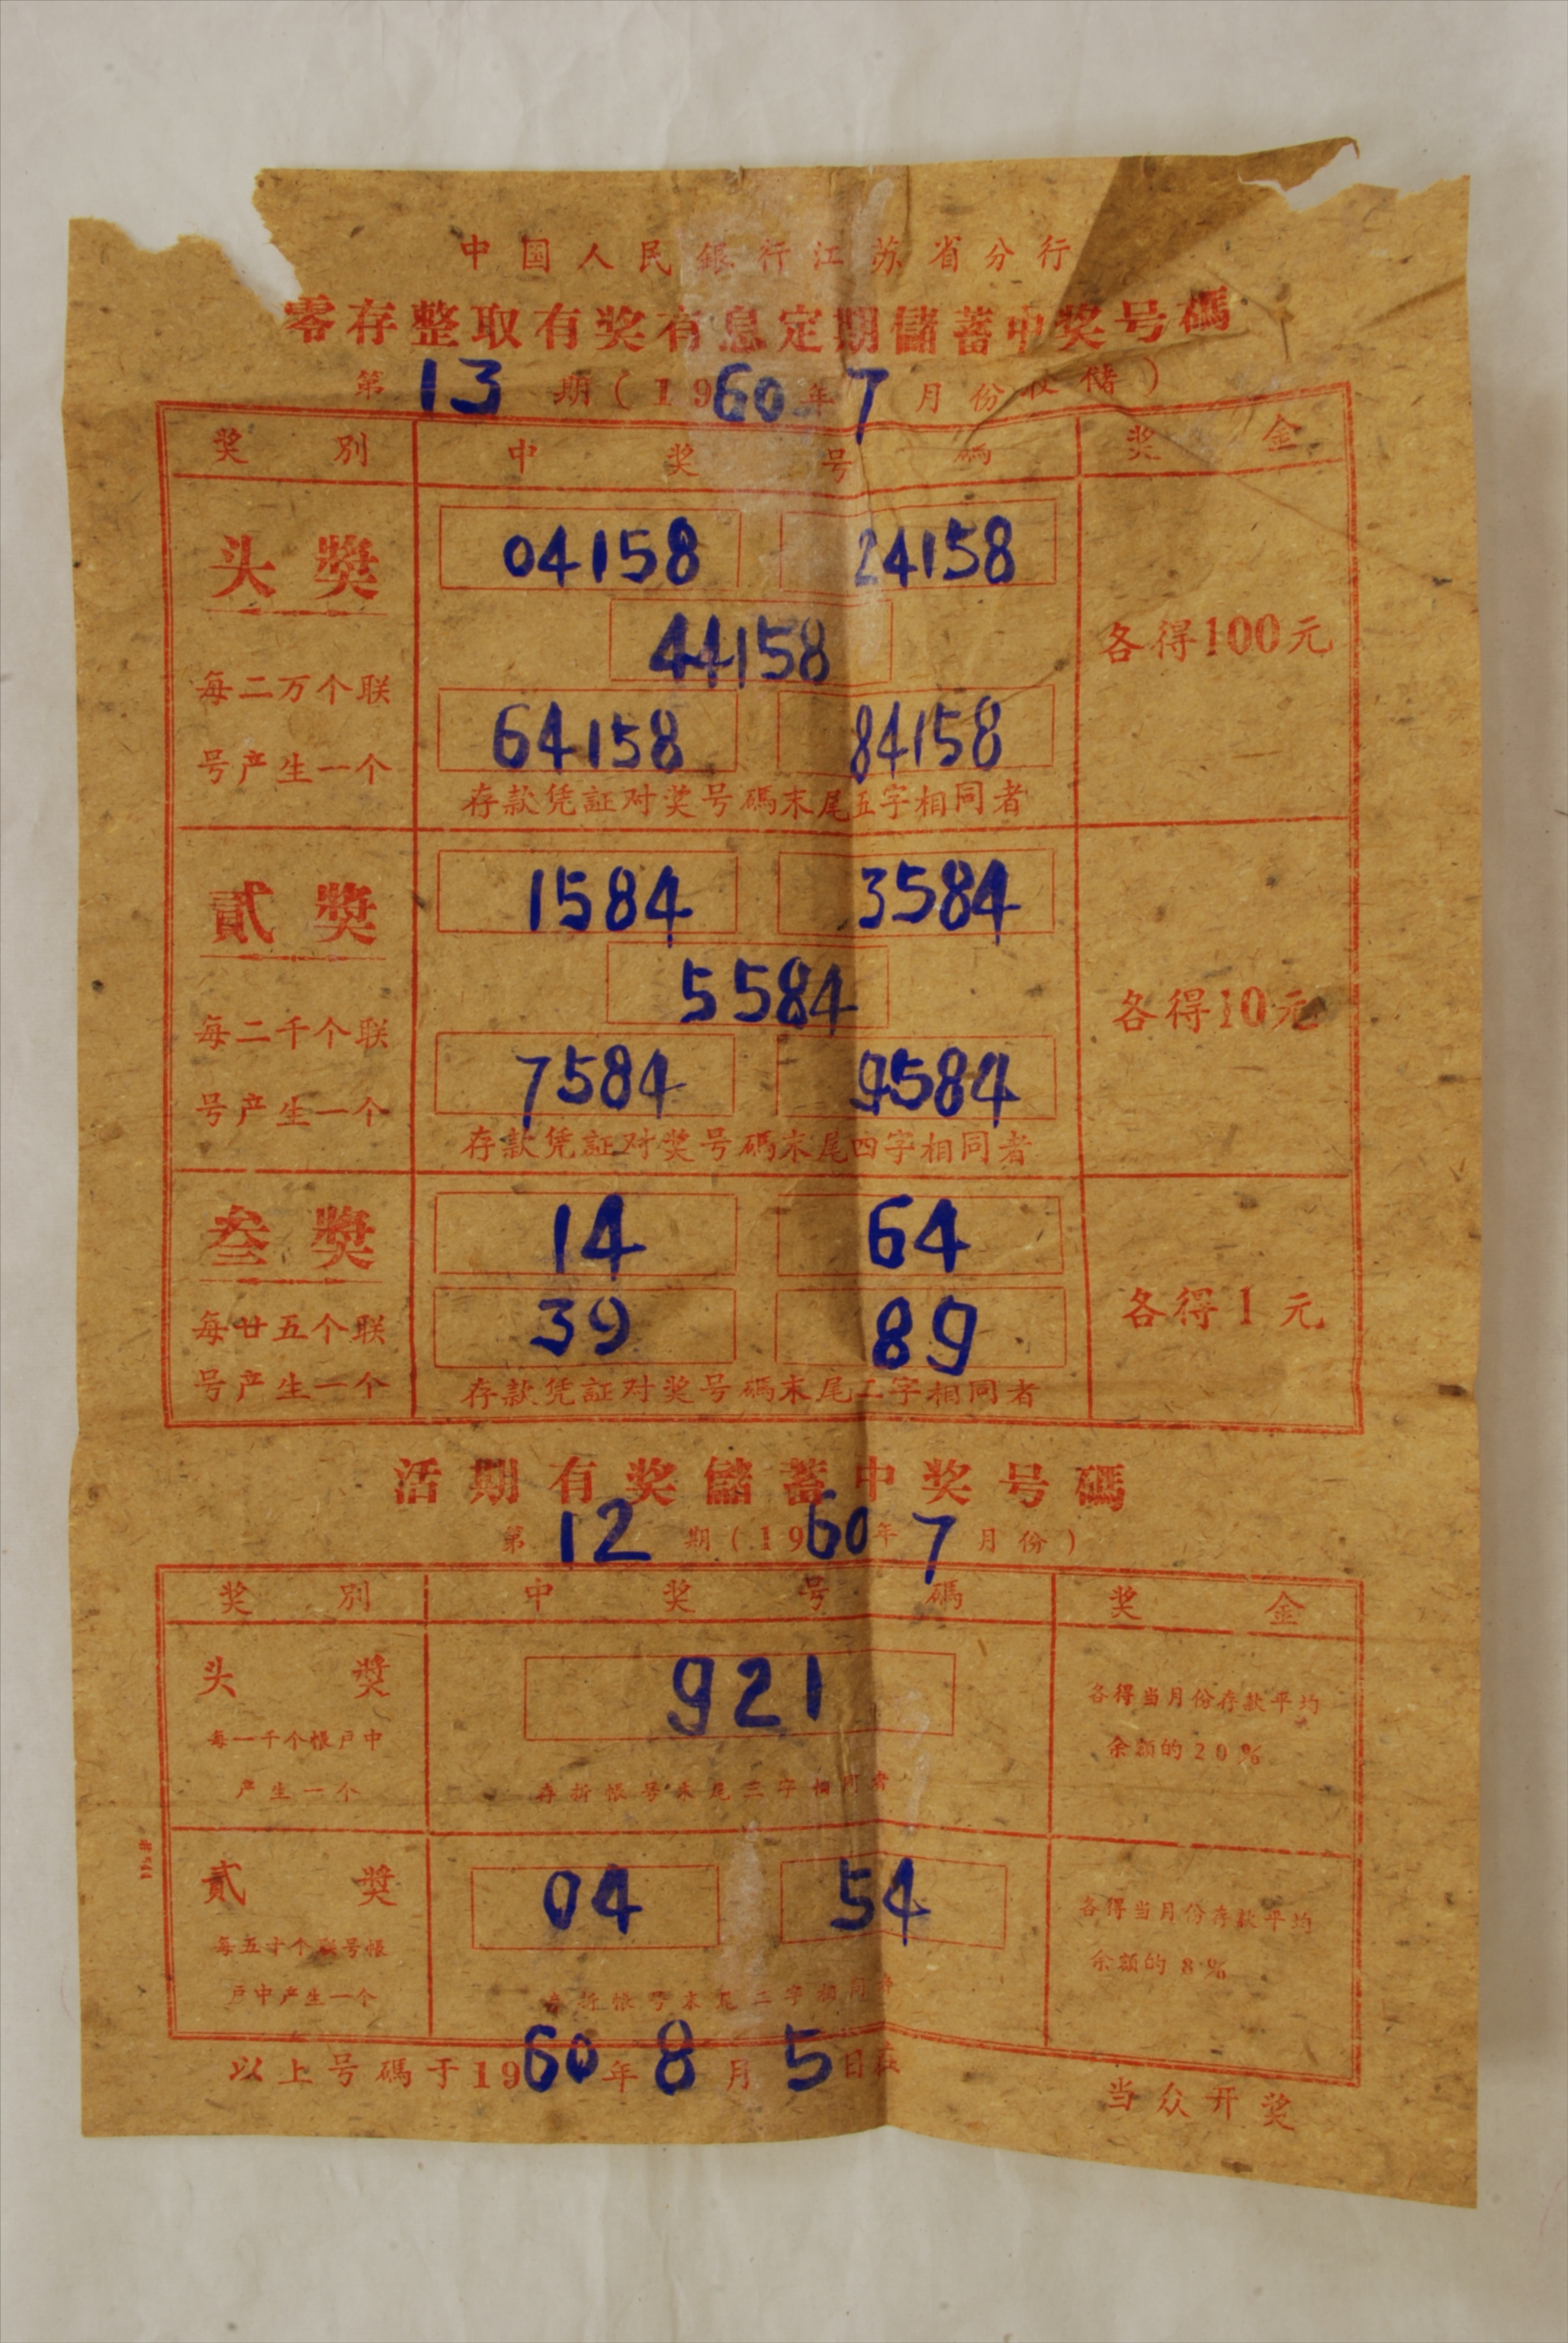 中国人民銀行江苏省分行
零存整取有奖有息定期儲蓄中奖号碼
第 13 期(1960年7月份收储)
奖別 中奖号碼 奖金
头獎
每二万个联
号产生一个
04158 24158
44158
64158 84158
存款凭証对奖号碼末尾五字相同者
各得100元
貳獎
每二千个联
号产生一个
1584 3584
5584
7584 9584
存款凭証对奖号碼末尾四字相同者
各得10元
叁獎
每廿五个联
号产生一个
14 64
39 89
存款凭証对奖号碼末尾二字相同者
各得1元
活期有奖儲蓄中奖号碼
第 12 期(1960年7月份)
奖別 中奖号碼 奖金
头獎
每一千个帳户中
产生一个
921
存折帳号末尾三字相同者
各得当月份存款平均
余額的20%
貳獎
每五十个联号帳
户中产生一个
04 54
存折帳号末尾二字相同者
各得当月份存款平均
余額的8%
以上号碼于1960年8月5日在
当众开奖